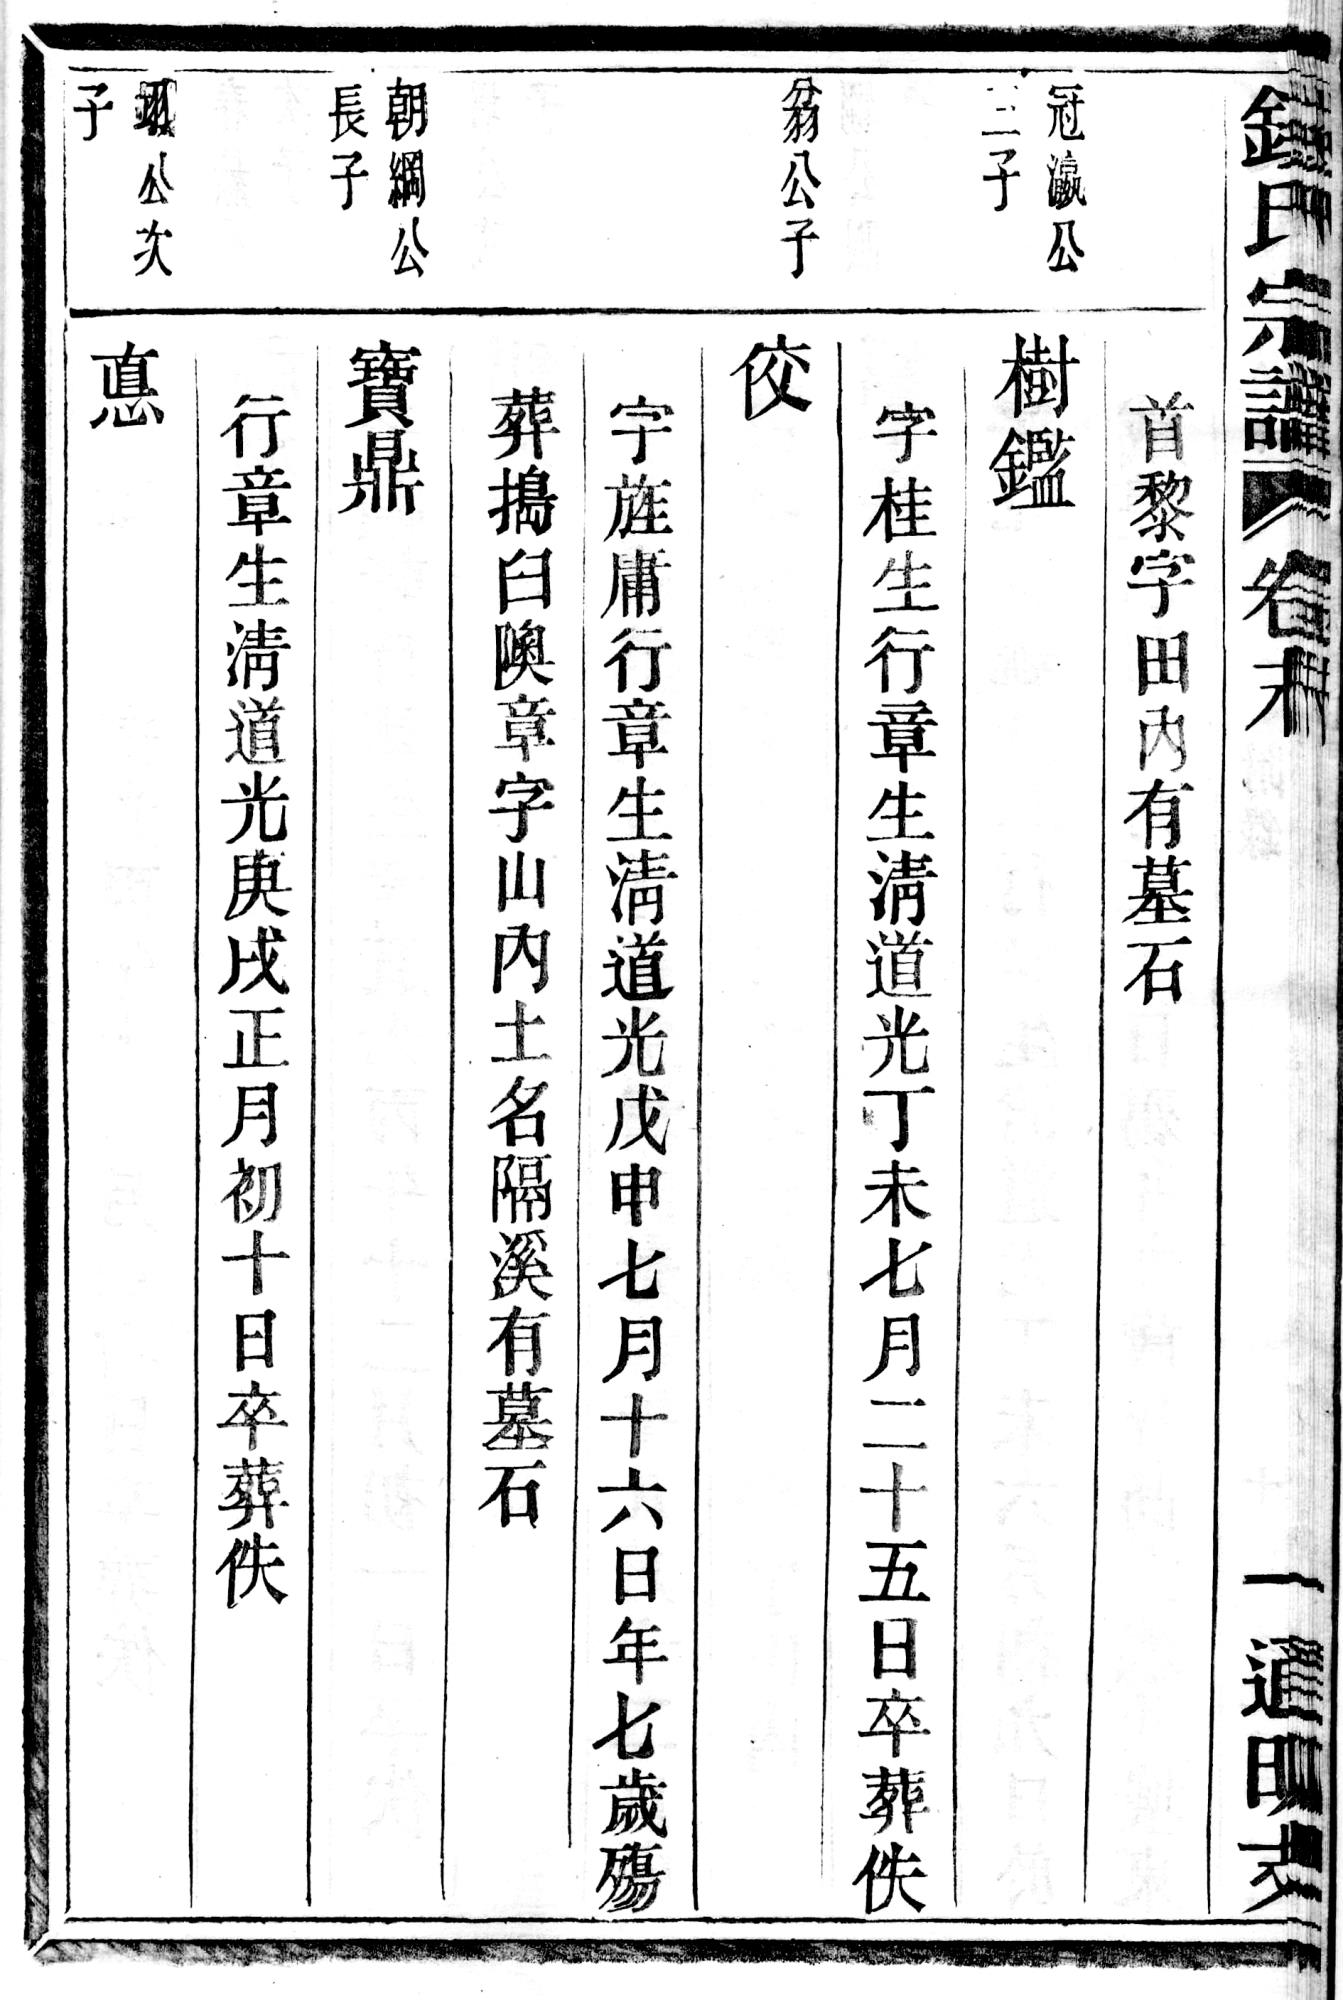 氏宗譜 卷末
首黎字田內有墓石
冠瀛公
三子
樹鑑
字桂生行章生淸道光丁未七月二十五日卒葬佚
翁公子
佼
字旌庸行章生淸道光戊申七月十六日年七歲殤
葬搗臼隩章字山內土名隔溪有墓石
朝綱公
長子
寶鼎
行章生淸道光庚戌正月初十日卒葬佚
公次
子
悳